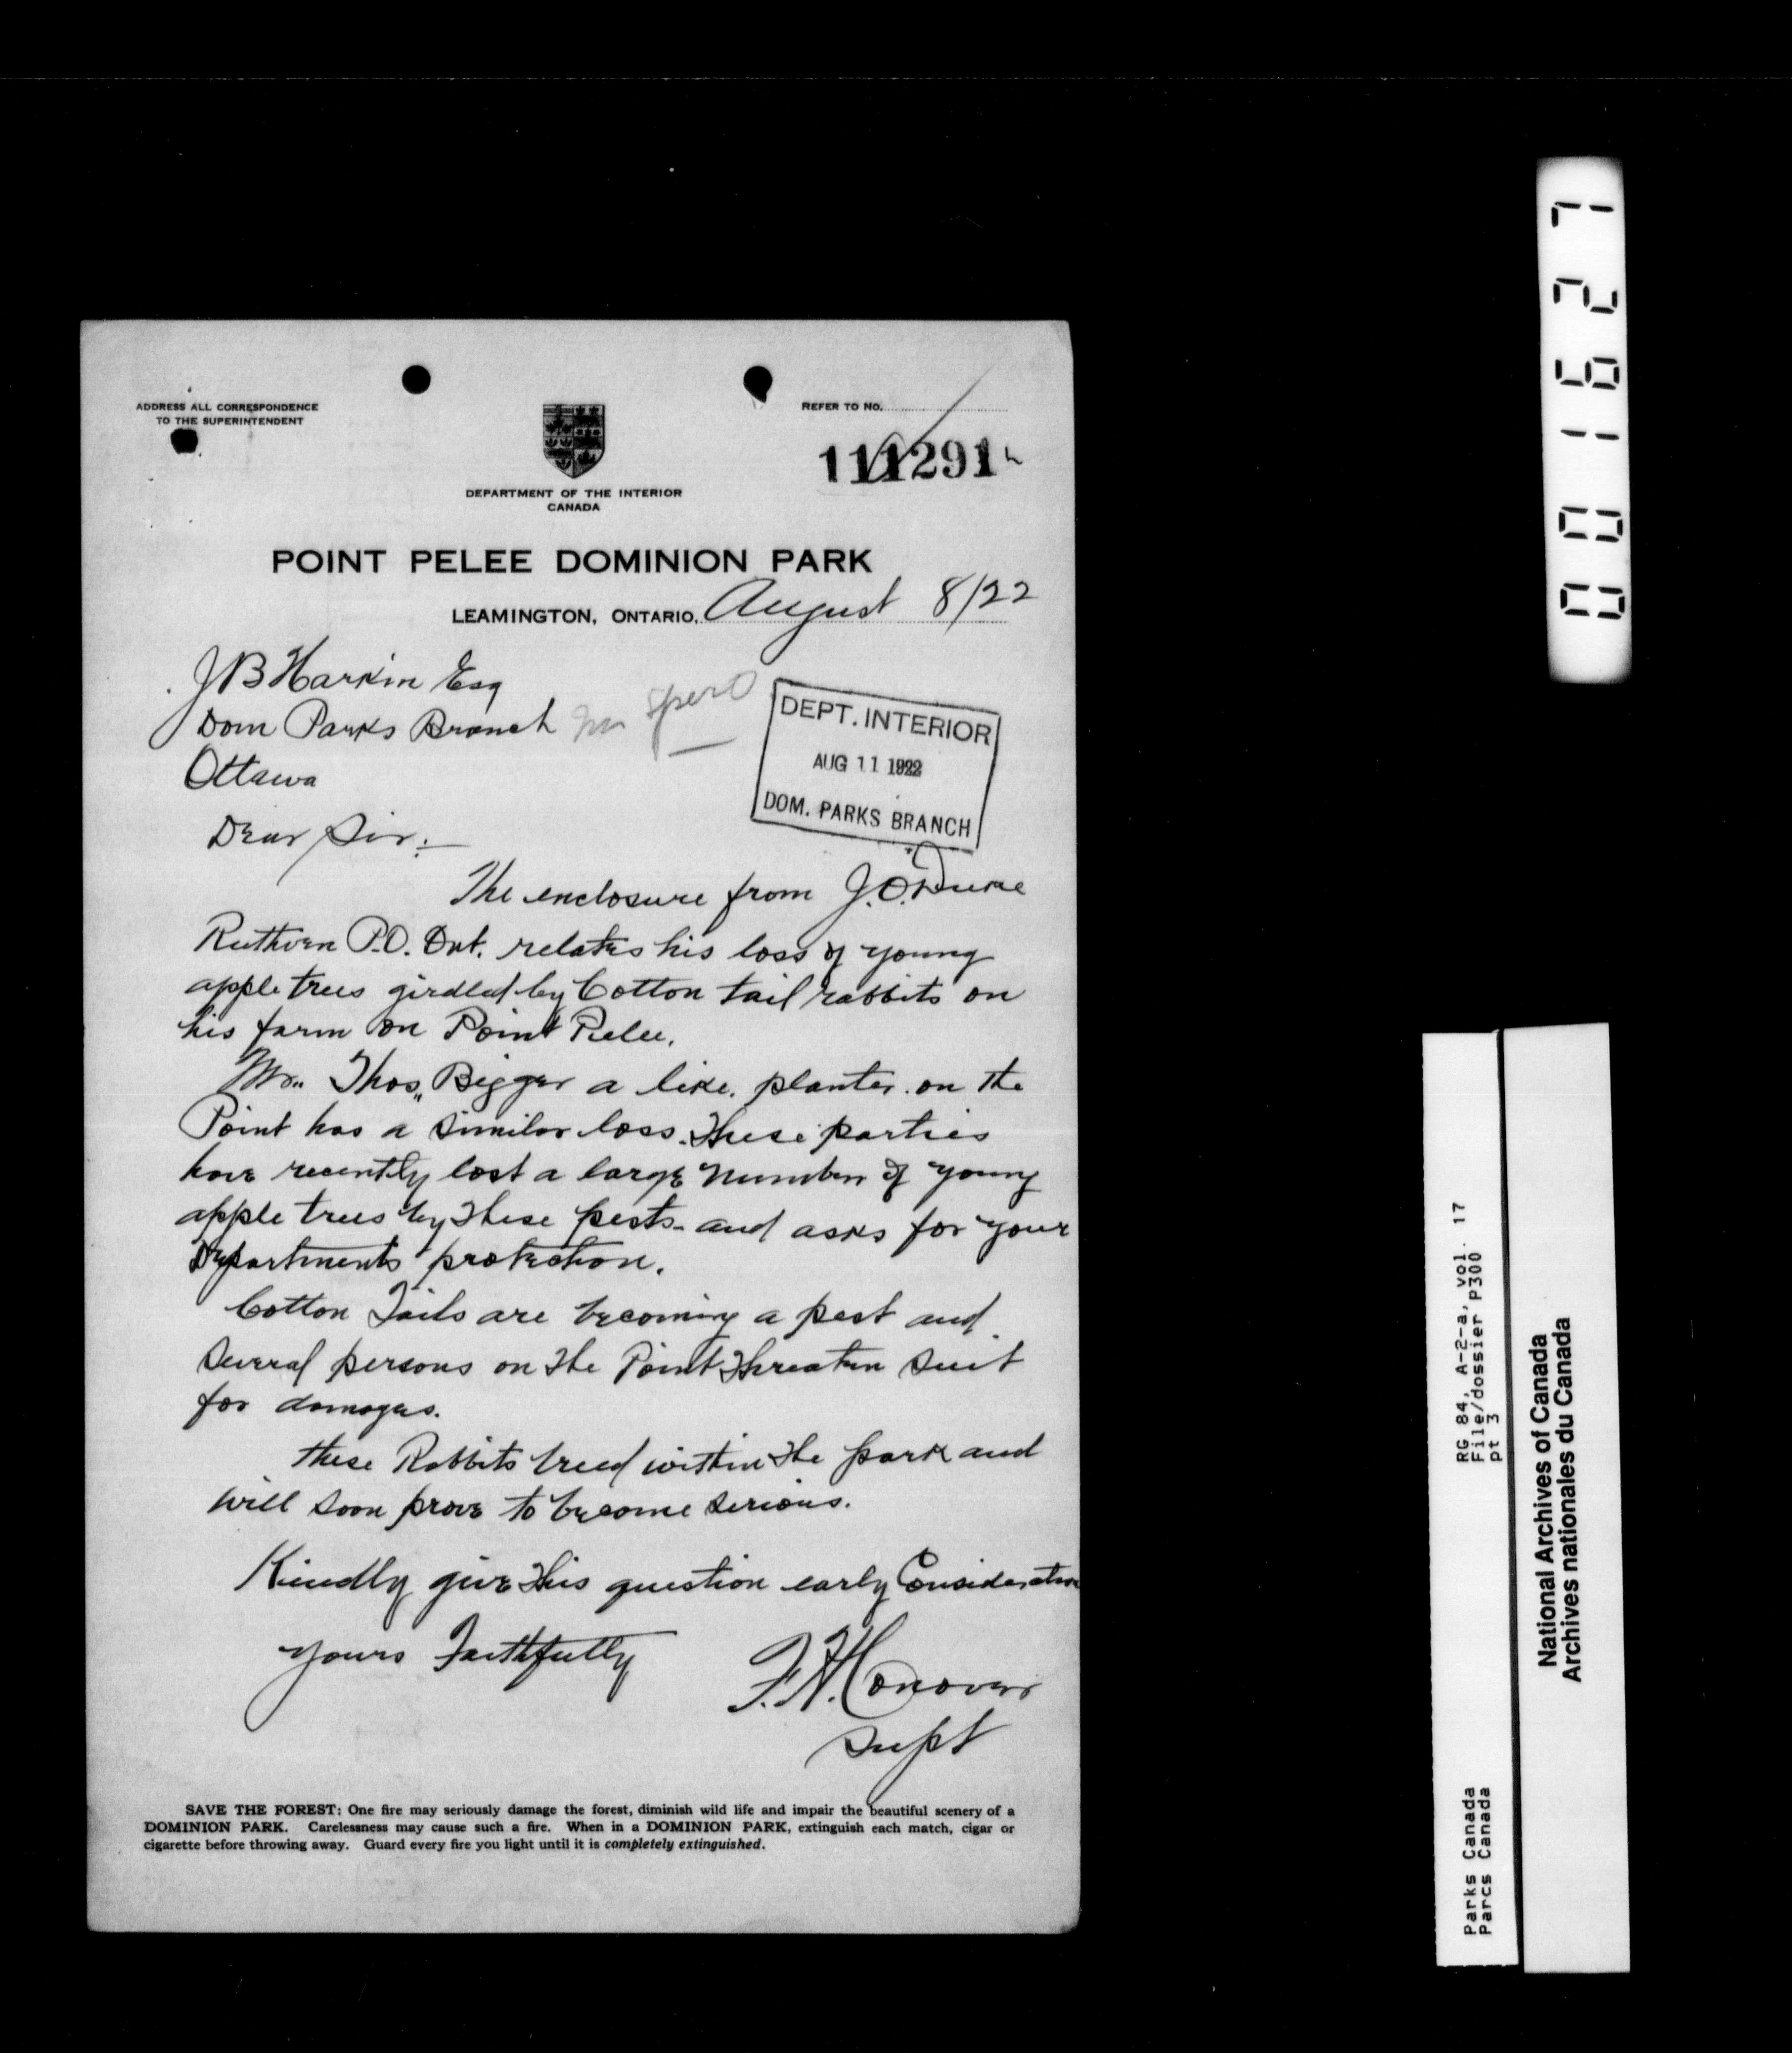 ADDRESS ALL CORRESPONDENCE
TO THE SUPERINTENDENT
REFER TO NO.
111291
DEPARTMENT OF THE INTERIOR
CANADA
POINT PELEE DOMINION PARK
LEAMINGTON, ONTARIO, August 8/22
JB Harkin Esq
Dom Parks Branch
Ottawa
DEPT. INTERIOR
AUG 11 1922
DOM. PARKS BRANCH
Dear Sir:
The enclosure from J.O. Duke
Ruthven P.O. Ont. relates his loss of young
apple trees girdled by Cotton tail rabbits on
his farm on Point Pelee.
Mr. Thos, Bigger a like. planter. on the
Point has a similar loss. These parties
have recently lost a large number of young
apple trees by these pests - and asks for your
Departments protection.
Cotton Tails are becoming a pest and
several persons on the Point threaten suit
for damages.
these Rabbits breed within the park and
will soon prove to become serious.
Kindly give this question early Consideration
yours Faithfully
F.H. Conover
Supt
SAVE THE FOREST: One fire may seriously damage the forest, diminish wild life and impair the beautiful scenery of a
DOMINION PARK. Carelessness may cause such a fire. When in a DOMINION PARK, extinguish each match, cigar or
cigarette before throwing away. Guard every fire you light until it is completely extinguished.
001627
RG 84, A-2-a, vol. 17
File/dossier P300
pt 3
Parks Canada
Parcs Canada
National Archives of Canada
Archives nationales du Canada